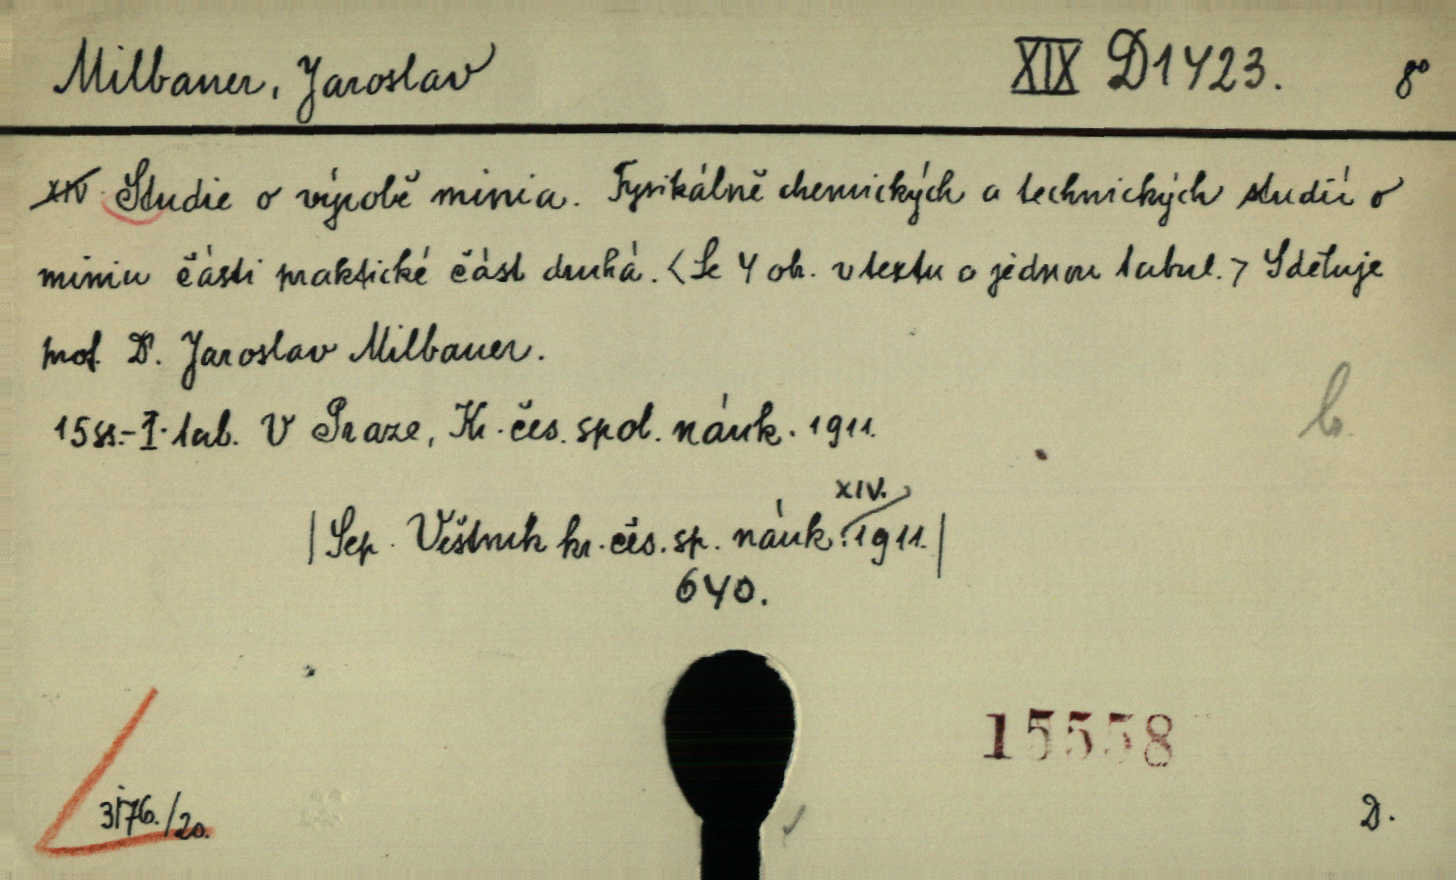 Milbauer, Jaroslav XIX D1423. 8°
XIV Studie o výrobě minia. Fysikálně chemických a technických studií o
miniu části praktické část druhá. <Se 4 obr. v textu a jednou tabul.> Sděluje
prof. Dr. Jaroslav Milbauer.
15 ss.-I. tab. V Praze, Kr. čes. spol. náuk. 1911.
XIV.
|Sep. Věstník kr. čes. sp. náuk. 1911.|
640.
15558
/20.
D.